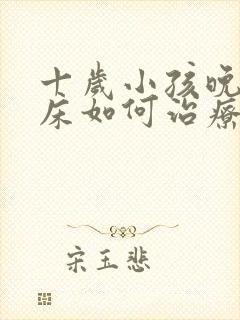 十岁小孩晚
床如何治疗
宋玉悲